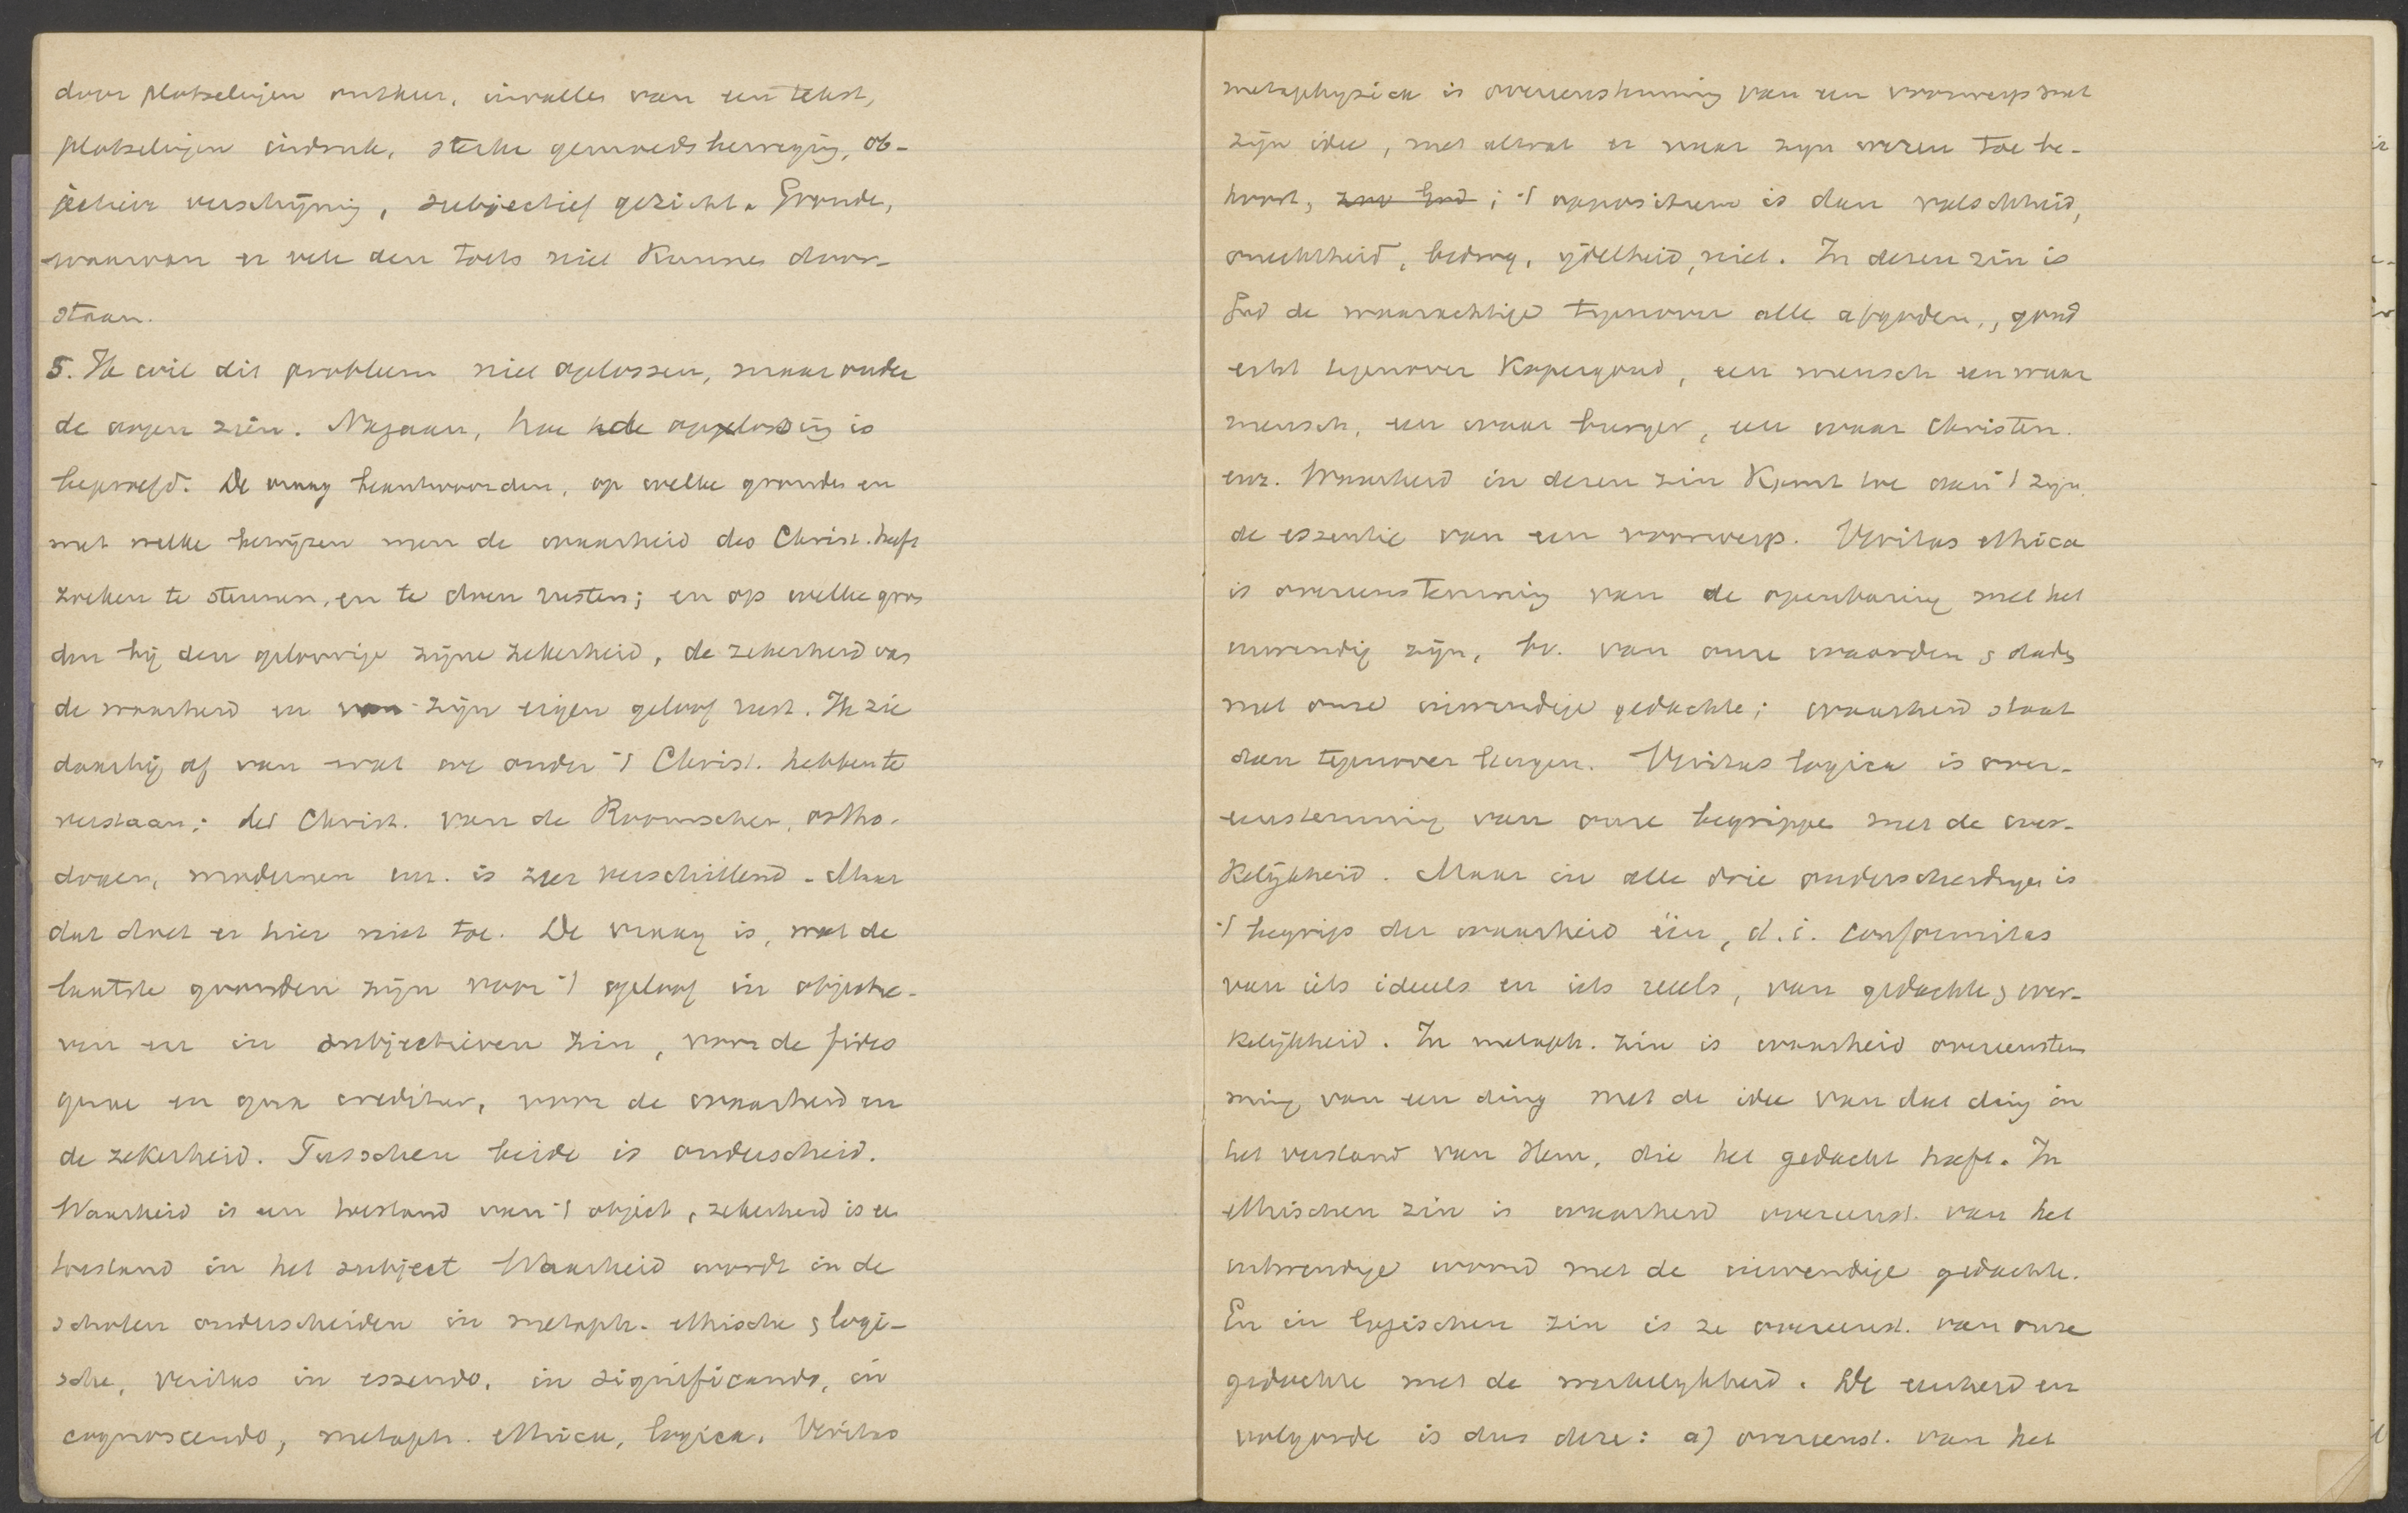 door plotselingen ommekeer, invallen van een tekst,
plotselingen indruk, sterke gemoedsbeweging, ob-
jectieve verschijning, subjectief gezicht. Gronden,
waarvan er vele den toets niet kunnen door-
staan.
5. Ik wil dit probleem niet oplossen, maar onder
de oogen zien. Nagaan, hoe de oplossing is
beproefd. De vraag beantwoorden, op welke gronden en
met welke bewijzen men de waarheid des Christ. heeft
zoeken te steunen, en te doen rusten; en op welke gron
den bij den geloovige zijne zekerheid, de zekerheid van
de waarheid en van zijn eigen geloof rust. Ik zie
daarbij af van wat we onder 't Christ. hebben te
verstaan; het Christ. van de Roomschen, ortho-
doxen, modernen enz. is zeer verschillend. Maar
dat doet er hier niet toe. De vraag is, wat de
laatste gronden zijn voor 't geloof in objectie-
ven en in subjectieven zin, voor de fides
quae en qua creditur, voor de waarheid en
de zekerheid. Tusschen beide is onderscheid.
Waarheid is een toestand van 't object, zekerheid is een
toestand in het subject Waarheid wordt in de
scholen onderscheiden in metaph. ethische & logi-
sche, veritas in essendo, in significando, in
cognoscendo, metaph. ethica, logica. Veritas
metaphysica is overeenstemming van een voorwerp met
zijn idee, met alwat er naar zijn wezen toe be-
hoort, zoo God; 't oppositum is dan valschheid,
onechtheid, bedrog, ijdelheid, niet. In dezen zin is
God de waarachtige tegenover alle afgoden, goud
echt tegenover kopergoud, een mensch een waar
mensch, een waar burger, een waar Christen.
enz. Waarheid in dezen zin komt toe aan 't zijn,
de essentie van een voorwerp. Veritas ethica
is overeenstemming van de openbaring met het
inwendig zijn, bv. van onze woorden & daden
met onze inwendige gedachte; waarheid staat
dan tegenover leugen. Veritas logica is over-
eenstemming van onze begrippen met de wer-
kelijkheid. Maar in alle drie onderscheidingen is
't begrip der waarheid één, d.i. conformitas
van iets ideeels en iets reeels, van gedachte & wer-
kelijkheid. In metaph. zin is waarheid overeenstem
ming van een ding met de idee van dat ding in
het verstand van Hem, die het gedacht heeft. In
ethischen zin is waarheid overeenst. van het
uitwendige woord met de inwendige gedachte.
En in logischen zin is ze overeenst. van onze
gedachte met de werkelijkheid. De eenheid en
volgorde is dus deze: a) overeenst. van het